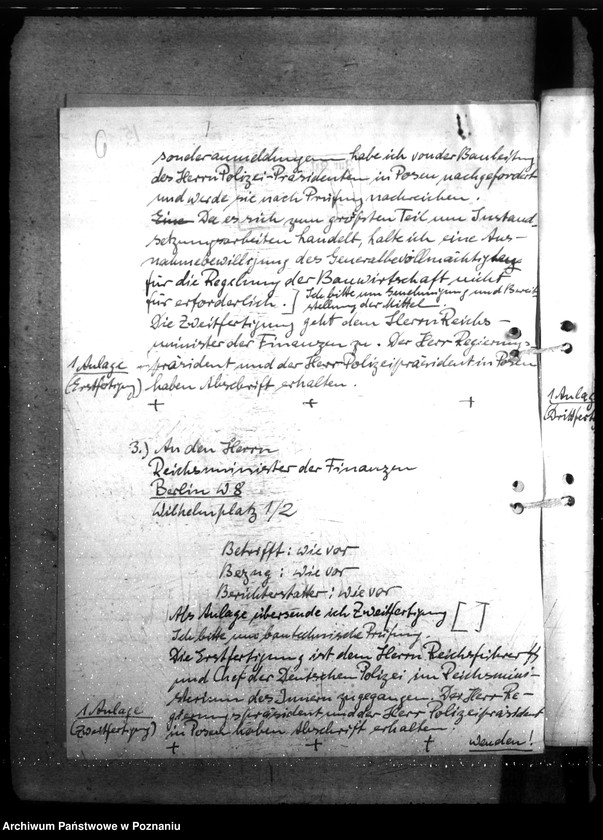 sonderanmeldungen habe ich von der Bauleitung
des Herrn Polizei-Präsidenten in Posen nachgefordert
und werde sie nach Prüfung nachreichen.
Eine Da es sich zum größten Teil um Instand-
setzungsarbeiten handelt, halte ich eine Aus-
nahmebewilligung des Generalbevollmächtigten
für die Regelung der Bauwirtschaft nicht
für erforderlich. ] Ich bitte um Genehmigung und Bereit-
stellung der Mittel
Die Zweitfertigung geht dem Herrn Reichs-
minister der Finanzen zu. Der Herr Regierungs-
1 Anlage präsident und der Herr Polizeipräsident in Posen
(Erstfertigung) haben Abschrift erhalten.
3.) An den Herrn
Reichsminister der Finanzen
Berlin W 8
Wilhelmplatz 1/2
Betrifft: wie vor
Bezug: wie vor
Berichterstatter: wie vor
Als Anlage übersende ich Zweitfertigung [ ]
Ich bitte um bautechnische Prüfung.
Die Erstfertigung ist dem Herrn Reichsführer SS
und Chef der Deutschen Polizei im Reichsmini-
sterium des Innern zugegangen. Der Herr Re-
1 Anlage gierungspräsident und der Herr Polizeipräsident
(Zweitfertigung) in Posen haben Abschrift erhalten
wenden!
1 Anlage
(Drittfertig
Archiwum Państwowe w Poznaniu